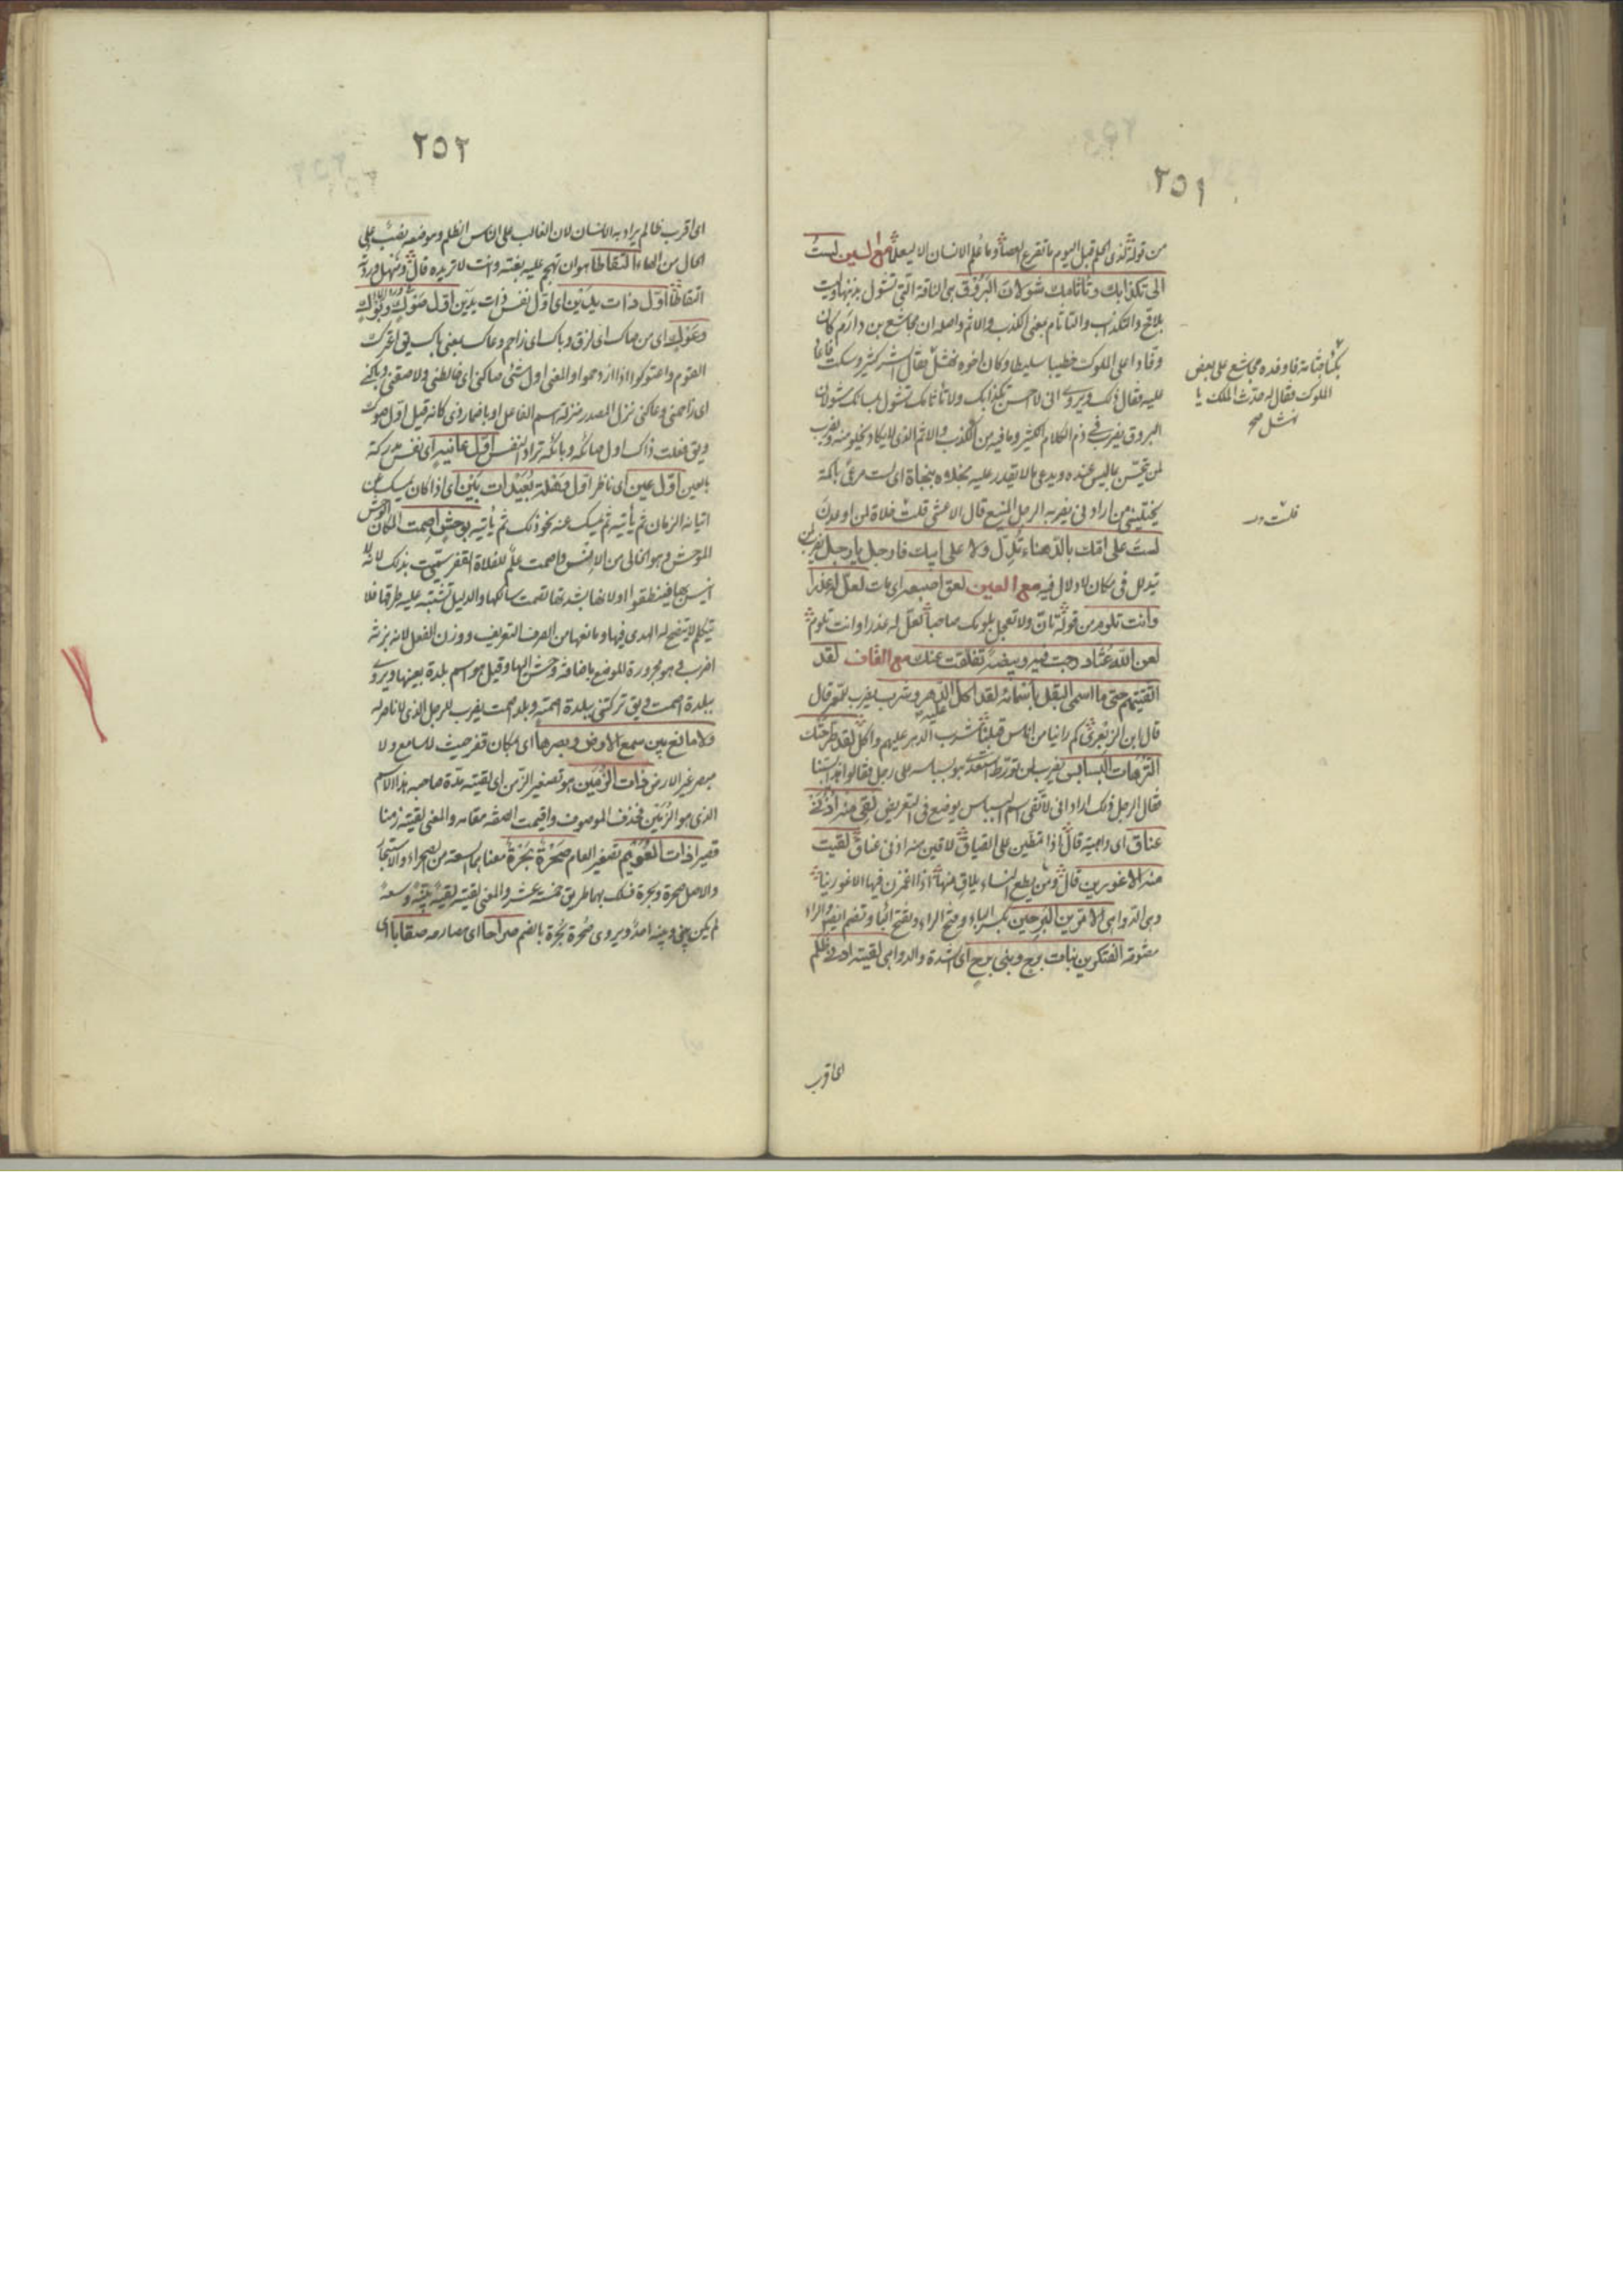 ٢٥١
من قوله لذي الحلم قبل اليوم ما تقرع العصا وما علم الانسان الا ليعلما مع السين لست
الى تكذابك وتأثامك شولان البروق هي الناقة التي تشول بذنبها وليست
بلاقح والتكذاب والتاثام بمعنى الكذب والاثم واصله ان مجاشع بن دارم كان
وفادا على الملوك خطيبا سليطا وكان اخوه نهشل فقال اشر كثير وسكت
لليه فقال ذلك ويروى انى لا احسن تكذابك ولا تأثامك تشول بلسانك شولان
البروق يضرب في ذم الكلام الكثير وما فيه من الكذب والاثم الذى لا يكاد يخلو منه ويضرب
لمن تحسن بما ليس عنده ويدعى ما لا يقدر عليه بخلاه بنجاة اى لست مرعى باكمة
يختليني من ارادنى يضربه الرجل المنيع قال الاعشى قلت خلاة لمن اوعدن
لست على امك بالدهناء تدل ولا على ابيك فارجل يا رجل يضرب لمن
تدلل فى مكان لا دلال فيه مع العين لعق اصبعه اى مات لعل له عذرا
وانت تلوم من قوله تان ولا تعجل بلومك صاحبا لعل له عذرا وانت تلوم
لعن الله عشا درجت فيه وبيضة تفلقت عنك مع القاف لقد
التقيتهم حتى ما اسمى البقل باسمائه لقد اكل الدهر وشرب عليه يضرب للمعمر قال
قال ابن الزبعرى كم راينا من اناس قبلنا شرب الدهر عليهم واكل لقد طرحتك
الترهات البسابس يضرب لمن تورط
فقال الرجل ذلك اراد انى يوضع فى التعريض لقى منه اذنى
عناق اى داهية قال اذا تمطين على القياقى لاقين منه اذنى عناق لقيت
منه الاغورين قال ومن يطع النساء يلاق منها اذا اغمزن فيها الاغورينا
وهى الدواهى الامرين البرحين بكسر الباء وفتح الراء وبفتح الباء وتضم ايضا والراء
مفتوحة الفتكرين بنات برح وبنى برح اى الشدة والدواهى لقيته ادنى ظلم
اى اقرب
فاوفده مجاشع على بعض
الملوك فقال له حدث الملك يا
نهشل صح
قلت
٢٥٢
اى اقرب ظالم يراد به الانسان لان الغالب على الناس الظلم وموضعه نصب على
الحال من الهاء التقاطا هو ان تهجم عليه بغتة وانت لا تريده قال ومنهل وردته
التقاطا اول ذات يدين اى اول نفس ذات يدين اول صوك وبوك
وعوك اى من صاك اى لزق وباك اى زاحم وعاك بمعنى باك يق اعترك
القوم واعتوكوا اذا ازدحموا والمعنى اول شئ صاكنى اى خالطنى ولاصقنى وباكنى
اى زاحمنى وعاكنى نزل المصدر منزلة اسم الفاعل او باضمار ذى كانه قيل اول ذى صوك
ويق فعلت ذاك اول صائكة وبائكة تراد النفس اول عائنة اى نفس مدركة
بالعين اول عين اى ناظر اول وهلة بعيدات بين اى اذا كان يمسك عن
اتيانه الزمان ثم يأتيه ثم يمسك عنه نحو ذلك ثم يأتيه بوحش اصمت المكان الوحش
الموحش وهو الخالى من الانس واصمت علم للفلاة القفر سميت بذلك لانه لا
انيس بها فينطقوا او لانها لشدتها تصمت سالكها والدليل تشتبه عليه طرقها فلا
يتكلم لا يتضح له الهدى فيها ومانعها من الصرف التعريف ووزن الفعل لانه بزنة
اضرب هو مجرورة الموضع باضافة وحش اليها وقيل هو اسم بلدة بعينها ويروى
ببلدة اصمت ويق تركتنى ببلدة اصمتة وبلد اصمت يضرب للرجل الذى لا ناصر له
ولا مانع بين سمع الارض وبصرها اى بمكان قفر حيث لا سامع ولا
مبصر غير الارض ذات الزمين هو تصغير الزمن اى لقيته مدة صاحبه هذا الاسم
الذى هو الزمين فحذف الموصوف واقيمت الصفة مقامه والمعنى لقيته زمنا
قصيرا ذات العويم تصغير العام صحرة بحرة معناهما السعة من الصحراء والاستبحار
والاصل صحرة وبحرة فسلك بهما طريق خمسة عشر والمعنى لقيته لقية بينة وسعة
لم يكن بينى وبينه احد ويروى صحرة بحرة بالضم صراحا اى مصارحة صقابا اى